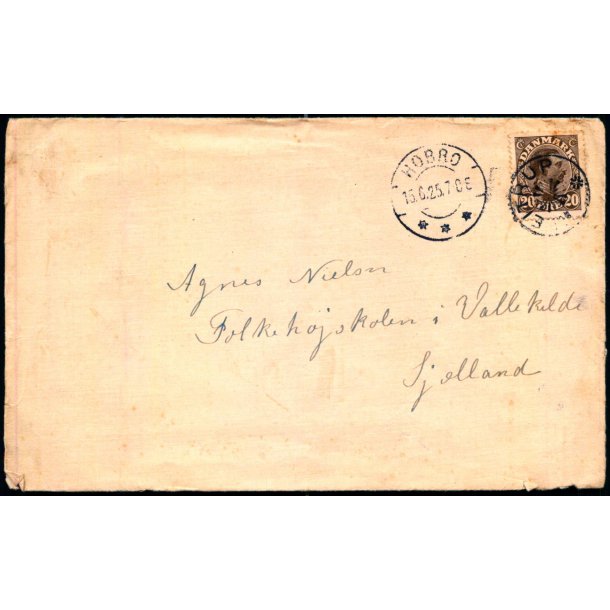 HOBRO
15.6.25.7-8 E
DANMARK
20 ØRE 20
Agnes Nielsen
Folkehøjskolen i Vallekilde
Sjælland